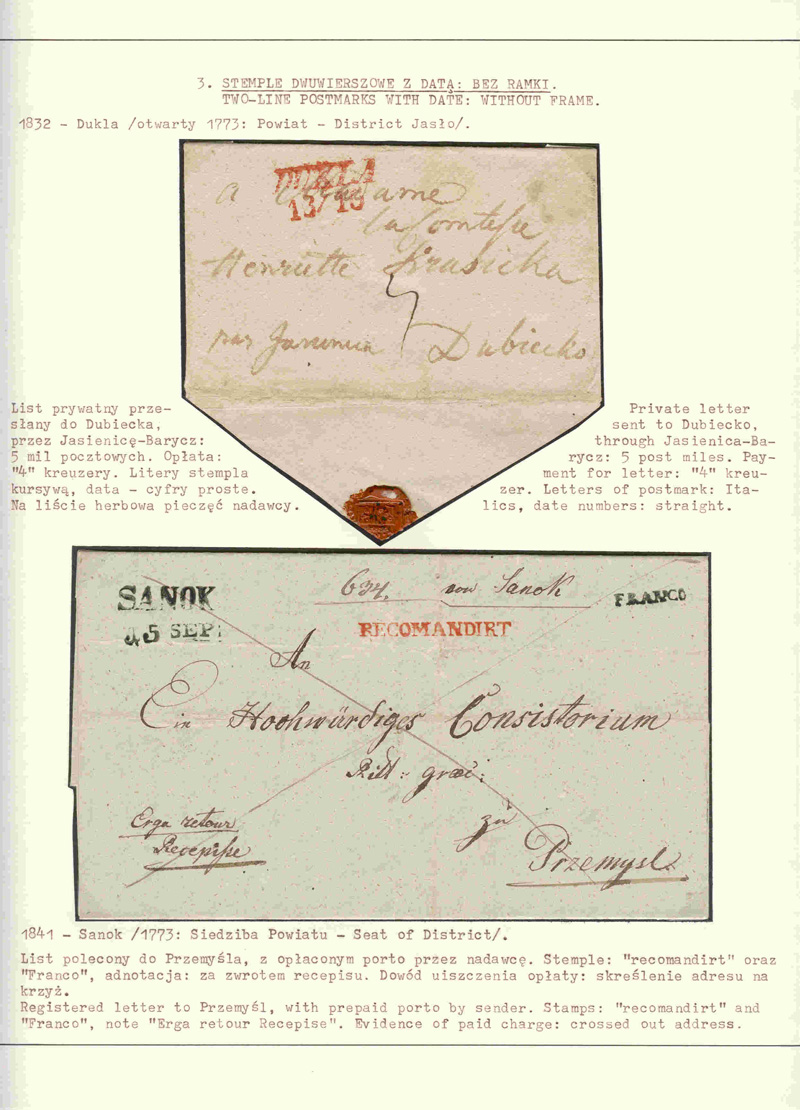 3. STEMPLE DWUWIERSZOWE Z DATĄ: BEZ RAMKI.
TWO-LINE POSTMARKS WITH DATE: WITHOUT FRAME.
1832 - Dukla /otwarty 1773: Powiat - District Jasło/.
DUKLA
13/
a Madame
la Comtesse
Henriette Krasicka
par
Dubiecko
List prywatny prze-
słany do Dubiecka,
przez Jasienicę-Barycz:
5 mil pocztowych. Opłata:
"4" kreuzery. Litery stempla
kursywą, data - cyfry proste.
Na liście herbowa pieczęć nadawcy.
Private letter
sent to Dubiecko,
through Jasienica-Ba-
rycz: 5 post miles. Pay-
ment for letter: "4" kreu-
zer. Letters of postmark: Ita-
lics, date numbers: straight.
634. von Sanok
SANOK
15 SEP:
FRANCO
RECOMANDIRT
An
Ein Hochwürdiges Consistorium
Ritt: graec:
zu
Przemysl
Erga retour
Recepisse
1841 - Sanok /1773: Siedziba Powiatu - Seat of District/.
List polecony do Przemyśla, z opłaconym porto przez nadawcę. Stemple: "recomandirt" oraz
"Franco", adnotacja: za zwrotem recepisu. Dowód uiszczenia opłaty: skreślenie adresu na
krzyż.
Registered letter to Przemyśl, with prepaid porto by sender. Stamps: "recomandirt" and
"Franco", note "Erga retour Recepise". Evidence of paid charge: crossed out address.